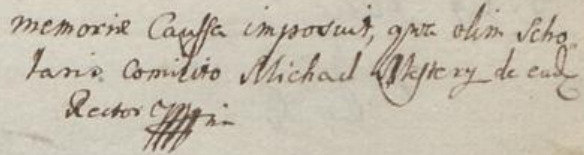 memoriæ Caussa imposuit, qua olim Scho-
laris Comilito Michael Mestery de ead
Rector